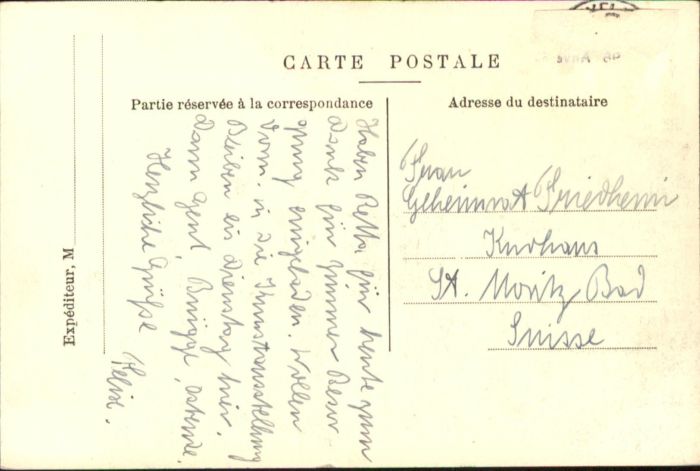 CARTE POSTALE
Partie réservée à la correspondance
Adresse du destinataire
Expéditeur, M
Haben Retta für heute zum
Dank für Zimmer Besor
gung eingeladen. Wollen
Vorm. in die Kunstausstellung
Bleiben bis Dienstag hier.
Dann Gent, Brügge, Ostende.
Herzliche Grüße
Felix.
Frau
Geheimrat Friedheim
Kurhaus
St. Moritz Bad
Suisse